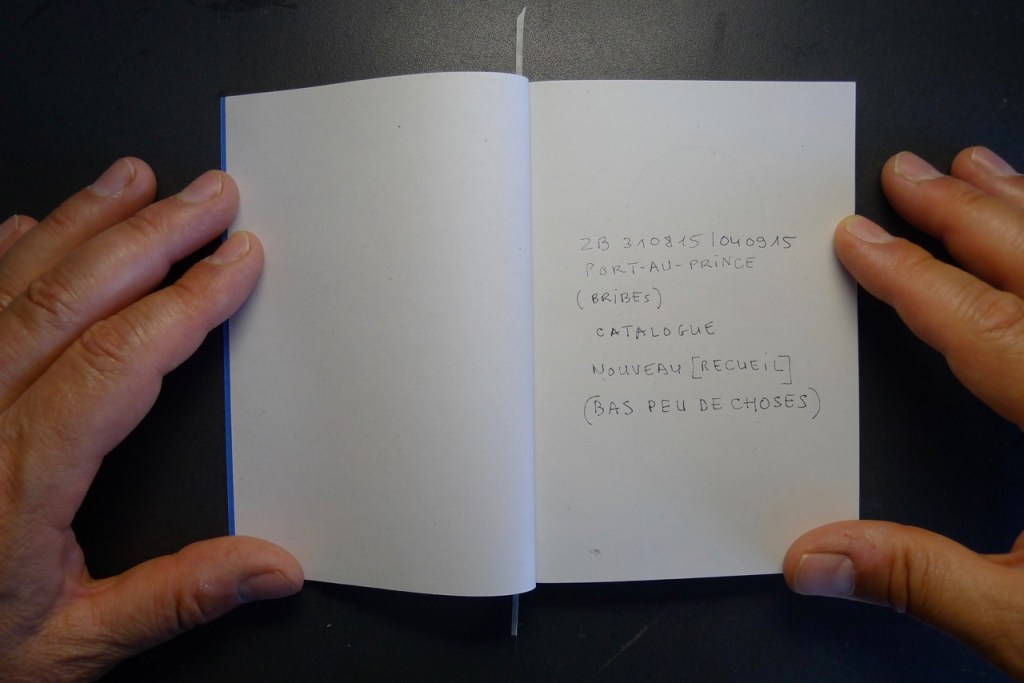 ZB 310815/040915
PORT-AU-PRINCE
(BRIBES)
CATALOGUE
NOUVEAU [RECUEIL]
(BAS PEU DE CHOSES)